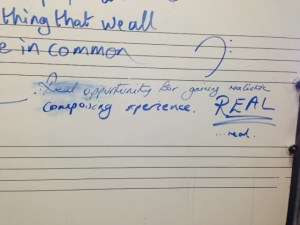 thing that we all
e in common
Real opportunity for gaining realistic
composing xperience. REAL
...real.